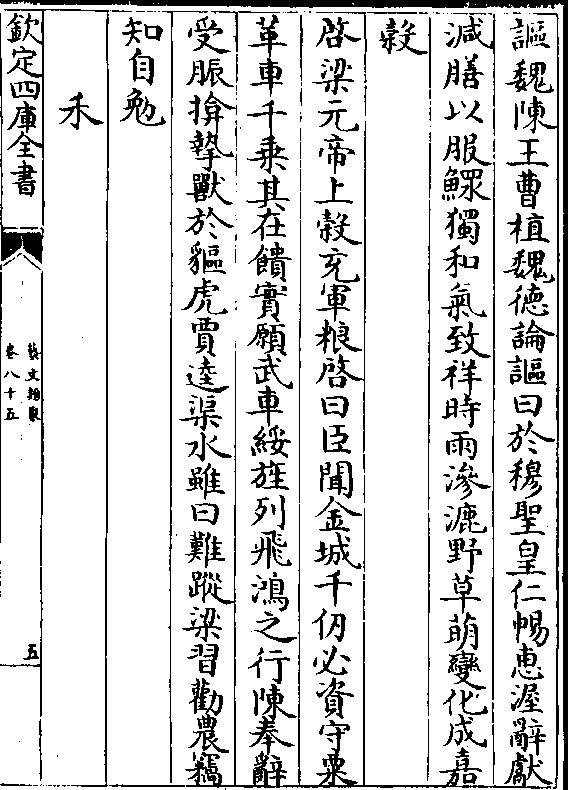 謳魏陳王曹植魏德論謳曰於穆聖皇仁暢惠渥辭獻
減膳以服鰥獨和氣致祥時雨滲漉野草萌變化成嘉
穀
啓梁元帝上穀充軍粮啓曰臣聞金城千仞必資守粟
革車千乗其在饋實願武車綏旌列飛鴻之行陳奉辭
受脤揜摯獸於貙虎賈逵渠水雖曰難蹤梁習勸農竊
知自勉
禾
欽定四庫全書
藝文類聚
卷八十五
五